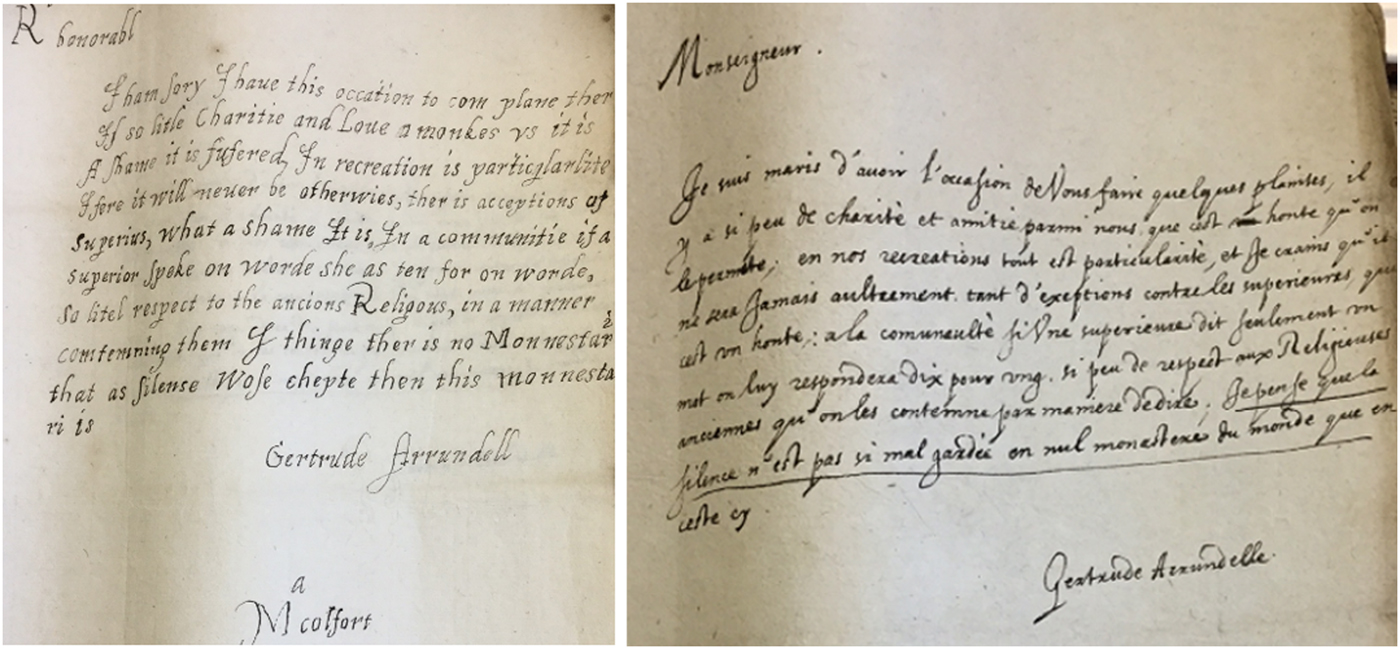 R honorabl
I ham sory I haue this occation to com plane ther
If so litle Charitie and Loue amonkes vs it is
A shame it is sufered, In recreation is particqlarlite
I fere it will neuer be otherwies, ther is acceptions of
Superius, what a shame It is, In a communitie if a
superior speke on worde she as ten for on worde,
so litel respect to the ancions Religous, in a manner
comtemning them I thinge ther is no Monnestari
that as silense Wose chepte then this monnesta
ri is
Gertrude Arrundell
a
M colfort
Monseigneur.
Je suis maris d'avoir l'occasion de Vous faire quelques plaintes, il
y a si peu de charitè et amitie parmi nous, que cest honte qu'on
le permète; en nos recreations tout est particularitè, et Je crains qu'il
ne sera Jamais aultrement. tant d'exeptions contre les superieures, que
cest vn honte; a la comunaultè si Vne superieure dit seulement vn
mot on luy respondera dix pour vng. si peu de respect aux Religieuses
anciennes qu'on les contemne par maniere de dire; Je pense que la
silence n'est pas si mal gardée en nul monastere du monde que en
ceste cy
Gertrude Arrundelle.